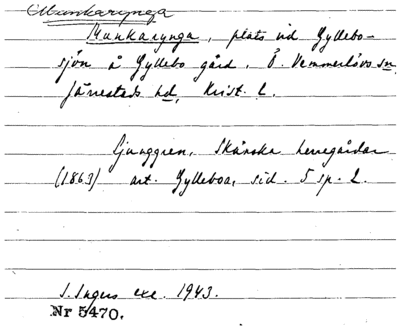 Munkarynga
Munkarynga, plats vid Gyllebo-
sjön å Gyllebo gård. Ö. Vemmerlövs sn,
Järrestads hd, Krist. l.
Ljunggren, Skånska herregårdar
(1863) art. Gylleboa, sid. 5 sp. 2.
S. Ingers exc. 1943.
Nr 5470.